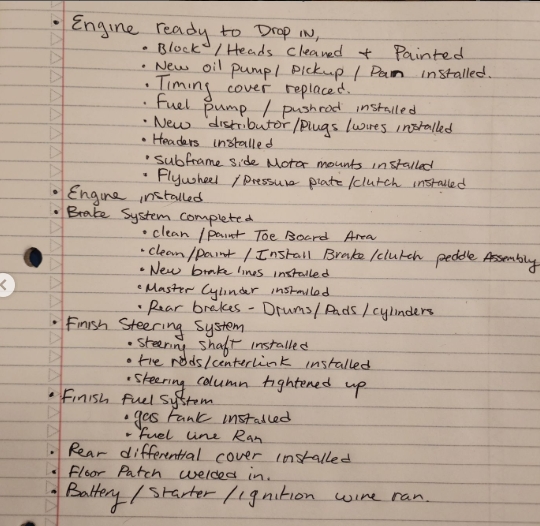 • Engine ready to Drop IN,
• Block / Heads cleaned + Painted
• New oil pump / Pickup / Pan installed.
• Timing cover replaced.
• Fuel pump / pushrod installed
• New distributor / Plugs / wires installed
• Headers installed
• Subframe side Motor mounts installed
• Flywheel / Pressure plate / clutch installed
• Engine installed
• Brake System completed
• clean / paint Toe Board Area
• clean / paint / Install Brake / clutch peddle Assembly
• New brake lines installed
• Master Cylinder installed
• Rear brakes - Drums / Pads / cylinders
• Finish Steering System
• Steering shaft installed
• tie rods / centerlink installed
• Steering column tightened up
• Finish Fuel System
• gas tank installed
• fuel line Ran
• Rear differential cover installed
• Floor Patch welded in.
• Battery / Starter / ignition wire ran.